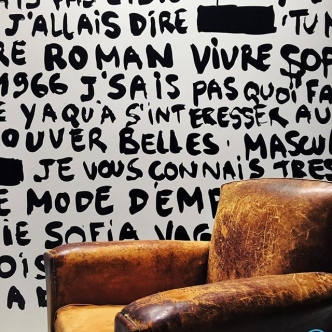 J'ALLAIS DIRE 'TU
RE ROMAN VIVRE SOP
1966 J'SAIS PAS QUOI FA
E YAQU'A S'INTERESSER AU
OUVER BELLES. MASCUL
JE VOUS CONNAIS TRES
E MODE D'EMP
IE SOFIA VAG
OIS
A